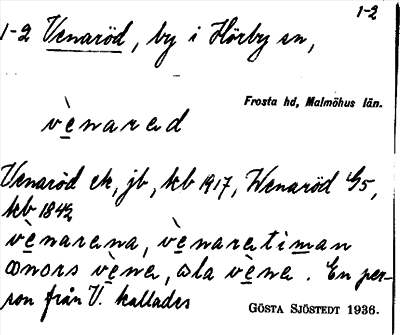 1-2
1-2 Venaröd, by i Hörby sn,
Frosta hd, Malmöhus län.
vènarəd
Venaröd ek, jb, kb 1917, Wenaröd GS,
kb 1842
vènarəna, vènarətiman
vènə, vènə. En per-
son från V. kallades
GÖSTA SJÖSTEDT 1936.